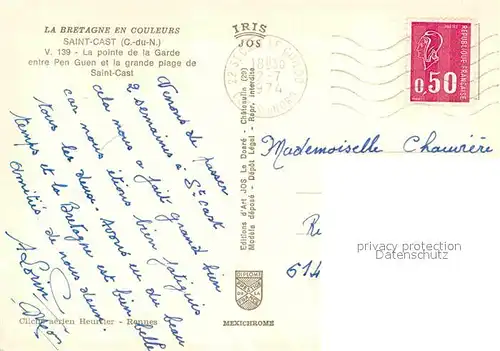 LA BRETAGNE EN COULEURS
SAINT-CAST (C.-du-N.)
V. 139 - La pointe de la Garde
entre Pen Guen et la grande plage de
Saint-Cast
IRIS
JOS
18H30
-7
74
RÉPUBLIQUE FRANÇAISE
0,50
Venons de passer
2 semaines à St Cast
cela nous a fait grand bien
car nous étions bien fatigués
tous les deux. Avons eu du beau
temps et la Bretagne est bien belle
Amitiés de nous deux.
Editions d'Art JOS Le Doaré - Châteaulin (29)
Modèle déposé - Dépôt Légal - Repr. interdite
Mademoiselle Chauvière
Re
614
privacy protection
by Delcampe
Cliché aérien Heurtier - Rennes
MEXICHROME